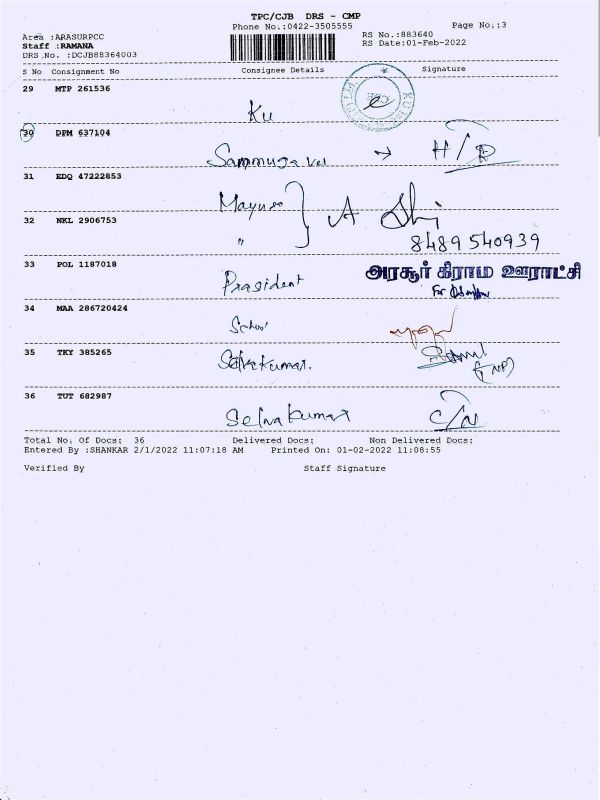 TPC/CJB DRS - CMP
Phone No.:0422-3505555
Page No.:3
Area :ARASURPCC
RS No.:883640
Staff :RAMANA
RS Date:01-Feb-2022
DRS No. :DCJB88364003
S No Consignment No Consignee Details Signature
29 MTP 261536
Ku
30 DPM 637104
Sammugavel → H/R
31 EDQ 47222853
Mayura
32 NKL 2906753
"
8489540939
33 POL 1187018
President
அரசூர் கிராம ஊராட்சி
34 MAA 286720424
School
35 TKY 385265
Selvakumar.
36 TUT 682987
Selvakumar C/N
Total No. Of Docs: 36 Delivered Docs: Non Delivered Docs:
Entered By :SHANKAR 2/1/2022 11:07:18 AM Printed On: 01-02-2022 11:08:55
Verified By Staff Signature